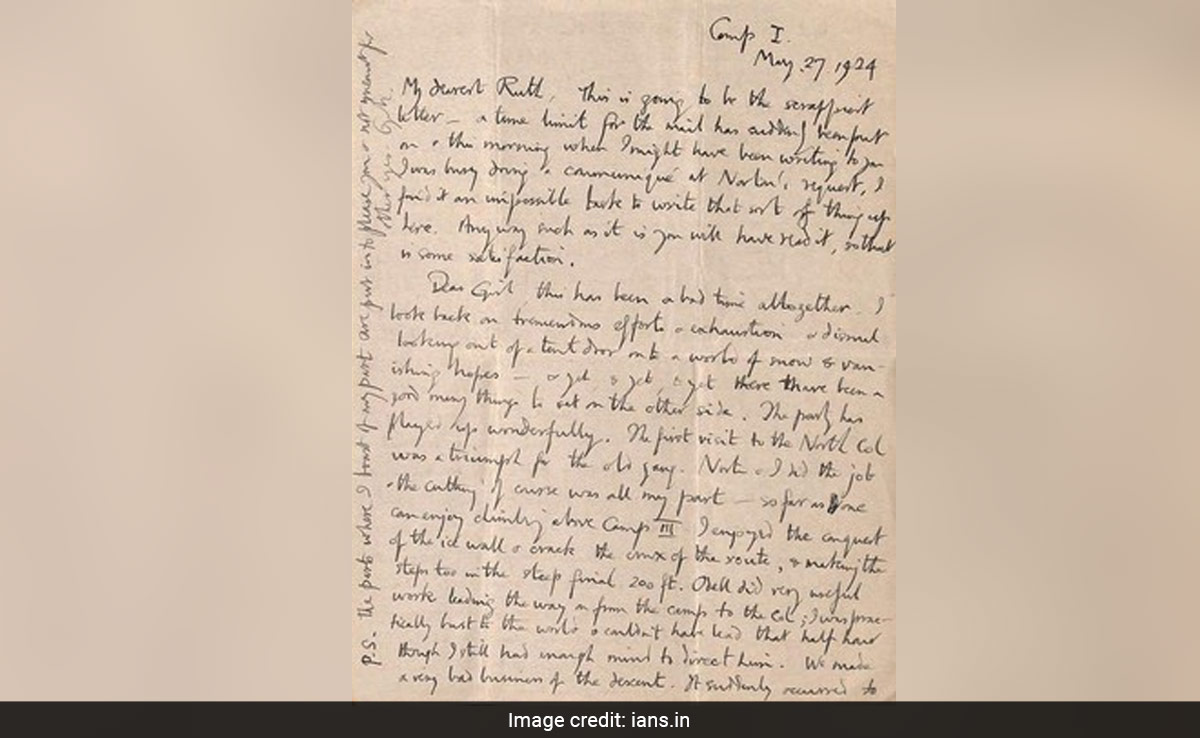 Camp I.
May. 27 1924
My dearest Ruth, This is going to be the scrappiest
letter — a time limit for the mail has suddenly been put
on & this morning when I might have been writing to you
I was busy doing a communiqué at Norton's request, I
find it an impossible task to write that sort of thing up
here. Anyway such as it is you will have read it, so that
is some satisfaction.
Dear Girl, this has been a bad time altogether. I
look back on tremendous efforts & exhaustion & dismal
looking out of a tent door onto a world of snow & van-
ishing hopes — & yet, & yet, & yet there have been a
good many things to set on the other side. The party has
played up wonderfully. The first visit to the North Col
was a triumph for the old gang. Norton & I did the job
& the cutting of course was all my part — so far as one
can enjoy climbing above Camp III I enjoyed the conquest
of the ice wall & crack the crux of the route, & making the
steps too in the steep final 200 ft. Odell did very useful
work leading the way on from the camp to the Col; I was prac-
tically bust to the world & couldn't have lead that half hour
though I still had enough mind to direct him. We made
a very bad business of the descent. It suddenly occurred to
P.S. The parts where I boast of my part are put in to please you & not meant for
other eyes. G.M.
Image credit: ians.in